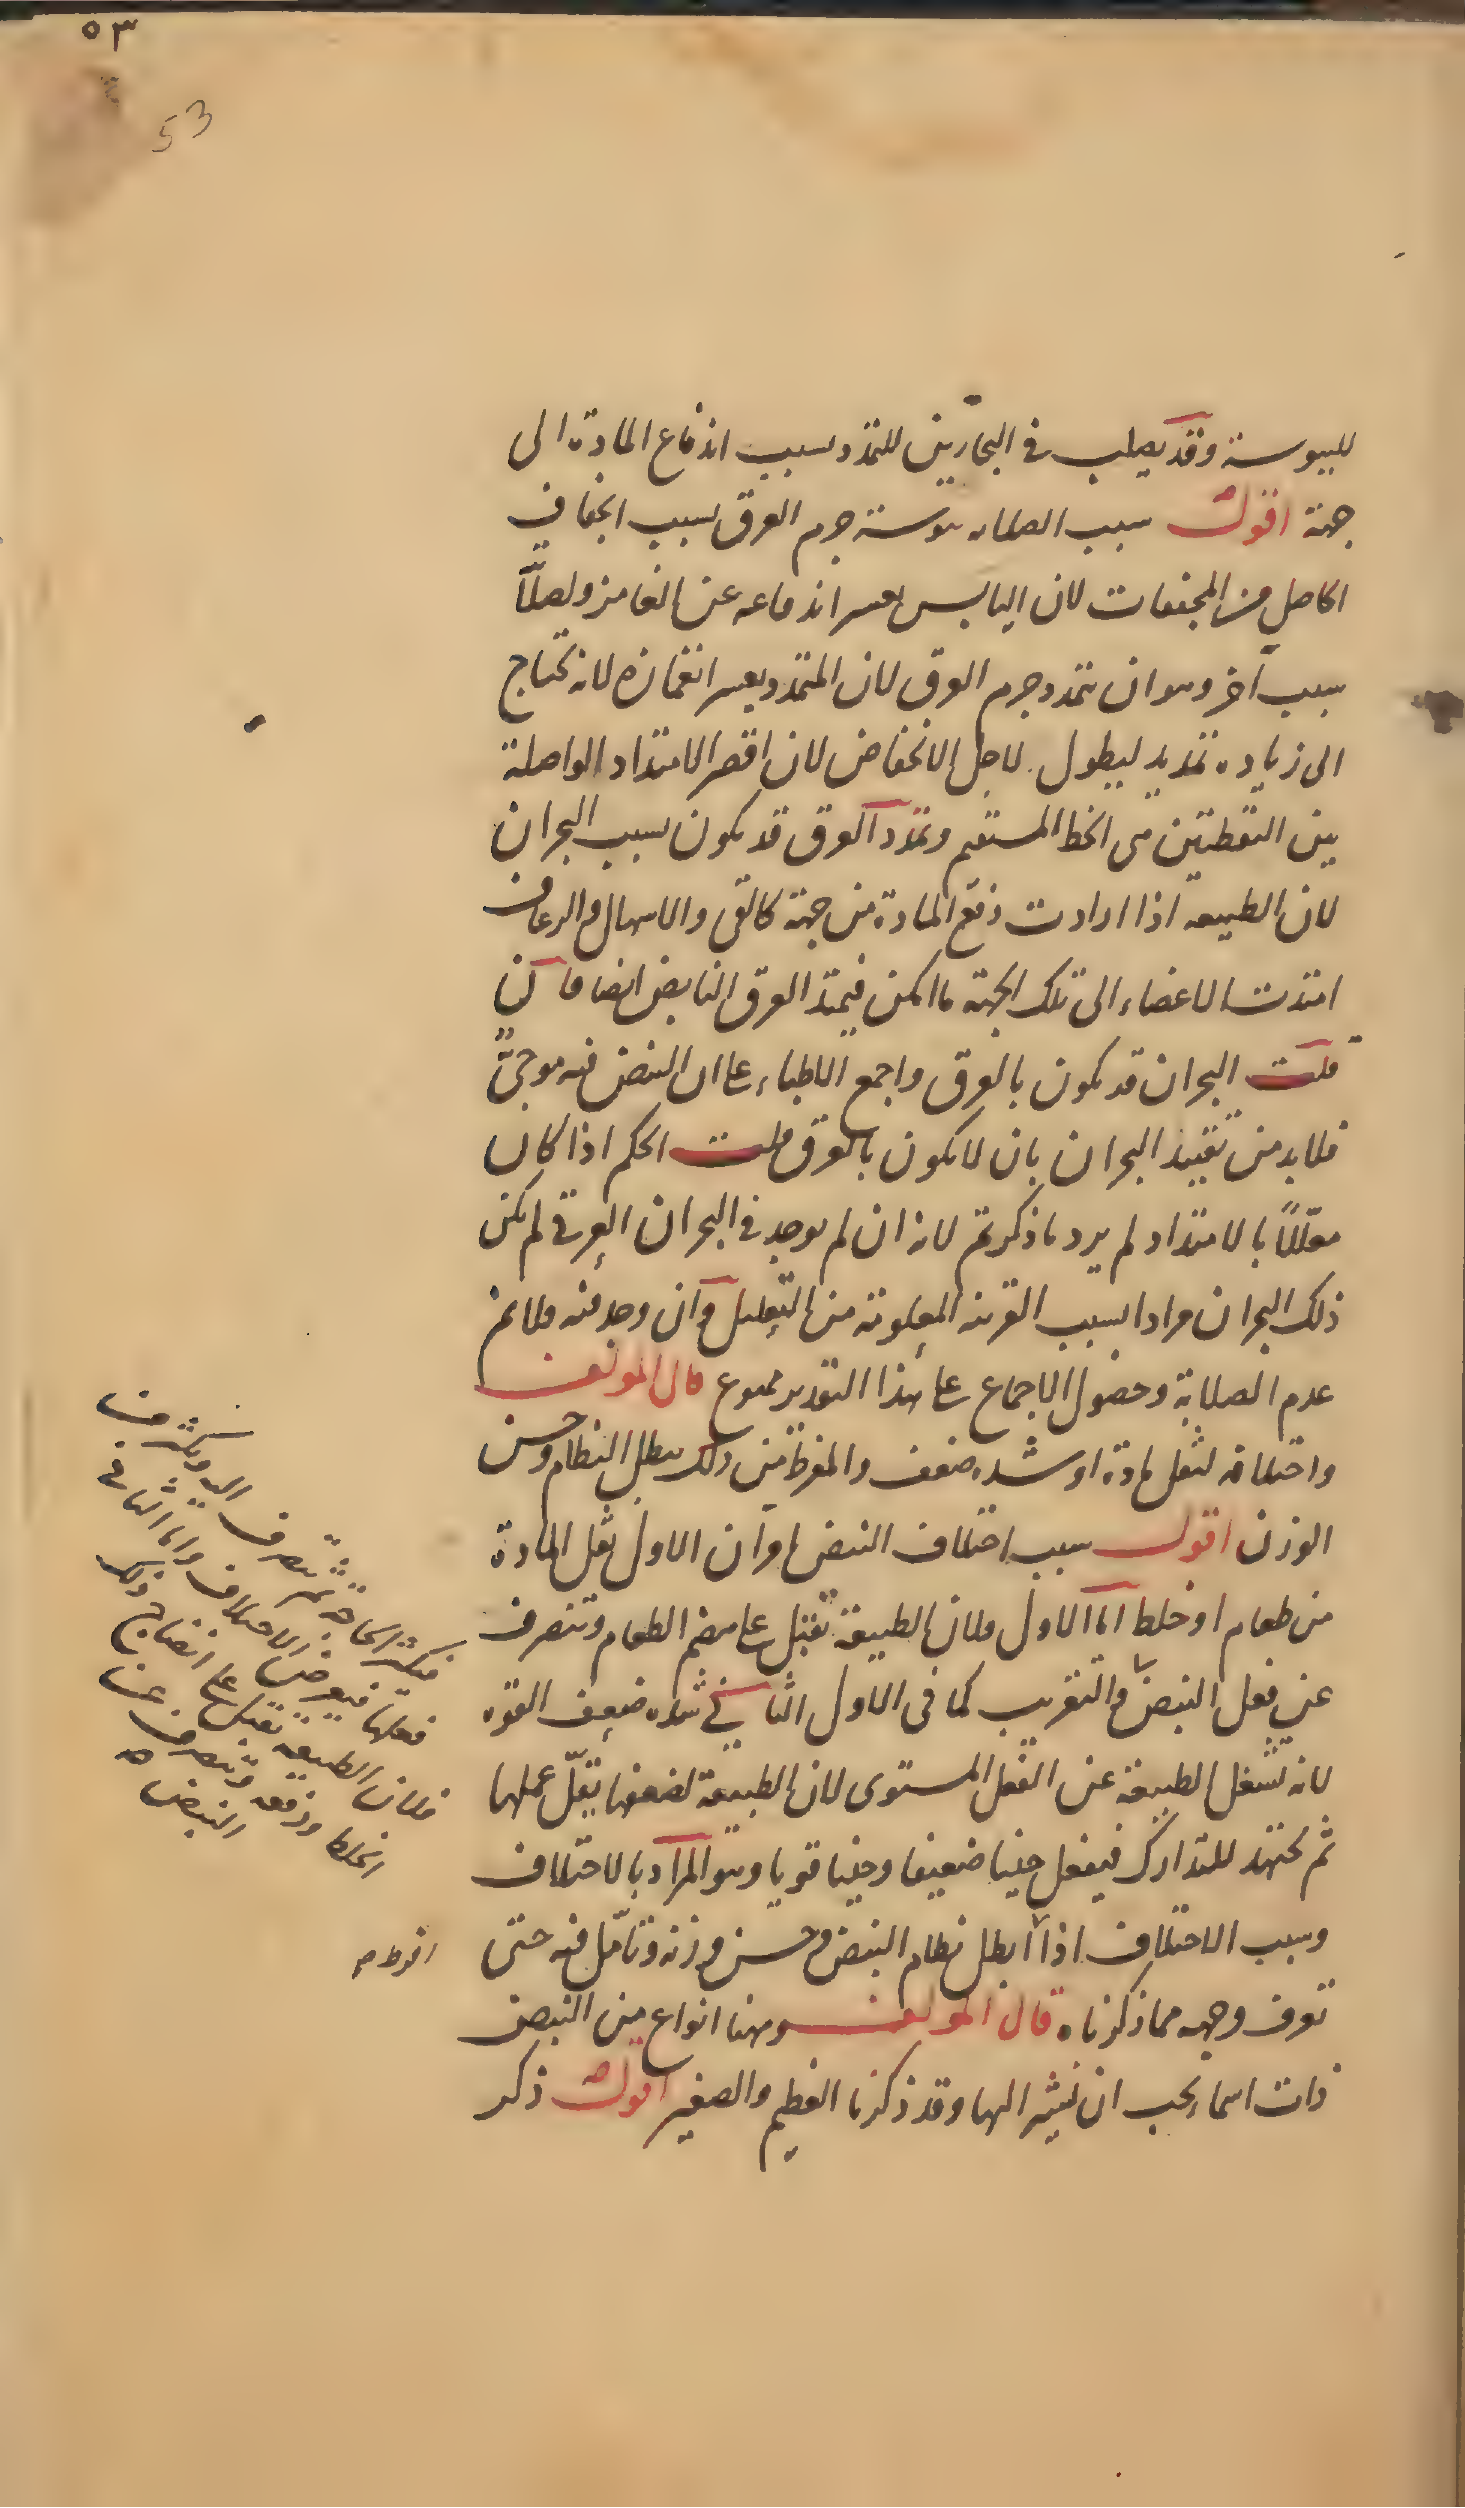 ٥٣
53
لليبوسة وقد يصلب في البحارين للتمدد بسبب اندفاع المادة الى
جهة اقول سبب الصلابه يبوسة جرم العرق بسبب الجفاف
الحاصل من المجففات لان اليابس يعسر اندفاعه عن الغامز ولصلابته
سبب آخر وهو ان يتمدد جرم العرق لان المتمدد يعسر انغمازه لانه يحتاج
الى زياده تمديد ليطول لاجل الانخفاض لان اقصر الامتداد الواصلة
بين النقطتين هي الخط المستقيم وتمدد العرق قد يكون بسبب البحران
لان الطبيعه اذا ارادت دفع المادة من جهة كالقي والاسهال والرعاف
امتدت الاعضاء الى تلك الجهة ما امكن فيمتد العرق النابض ايضا فان
قلت البحران قد يكون بالعرق واجمع الاطباء على ان النبض فيه موجي
فلابد من تقييد البحران بان لا يكون بالعرق قلت الحكم اذا كان
معللاً بالامتداد لم يرد ما ذكرتم لانه ان لم يوجد في البحران العرقي لم يكن
ذلك البحران مرادا بسبب القرينه المعلومة من التعليل وان وجد فيه فلا نم
عدم الصلابة وحصول الاجماع على هذا التقدير ممنوع قال المولف
واختلافه لثقل مادة او شده ضعف والمفرط من ذلك يبطل النظام وحسن
الوزن اقول سبب اختلاف النبض امران الاول ثقل المادة
من طعام او خلط اما الاول فلان الطبيعة تقبل على هضم الطعام وتنصرف
عن فعل النبض والتقريب كما في الاول الثاني شده ضعف القوه
لانه تشغل الطبيعة عن الفعل المستوى لان الطبيعة لضعفها يقل عملها
ثم تجتهد للتدارك فيفعل حينا ضعيفا وحينا قويا وهو المراد بالاختلاف
وسبب الاختلاف اذا ابطل نظام النبض وحسن وزنه وتامل فيه حتى
تعرف وجهه مما ذكرناه قال المولف وههنا انواع من النبض
ذات اسماء يجب ان نشير اليها وقد ذكرنا العظيم والصغير اقول ذكر
فيكثر الحاجة ثم تنصرف اليه ويكثر من
فعلها فيعرض الاختلاف واما الثاني
فلان الطبيعه تقبل على انضاج ذلك
الخلط ودفعه وتنصرف عن
النبض صح
افرط صح